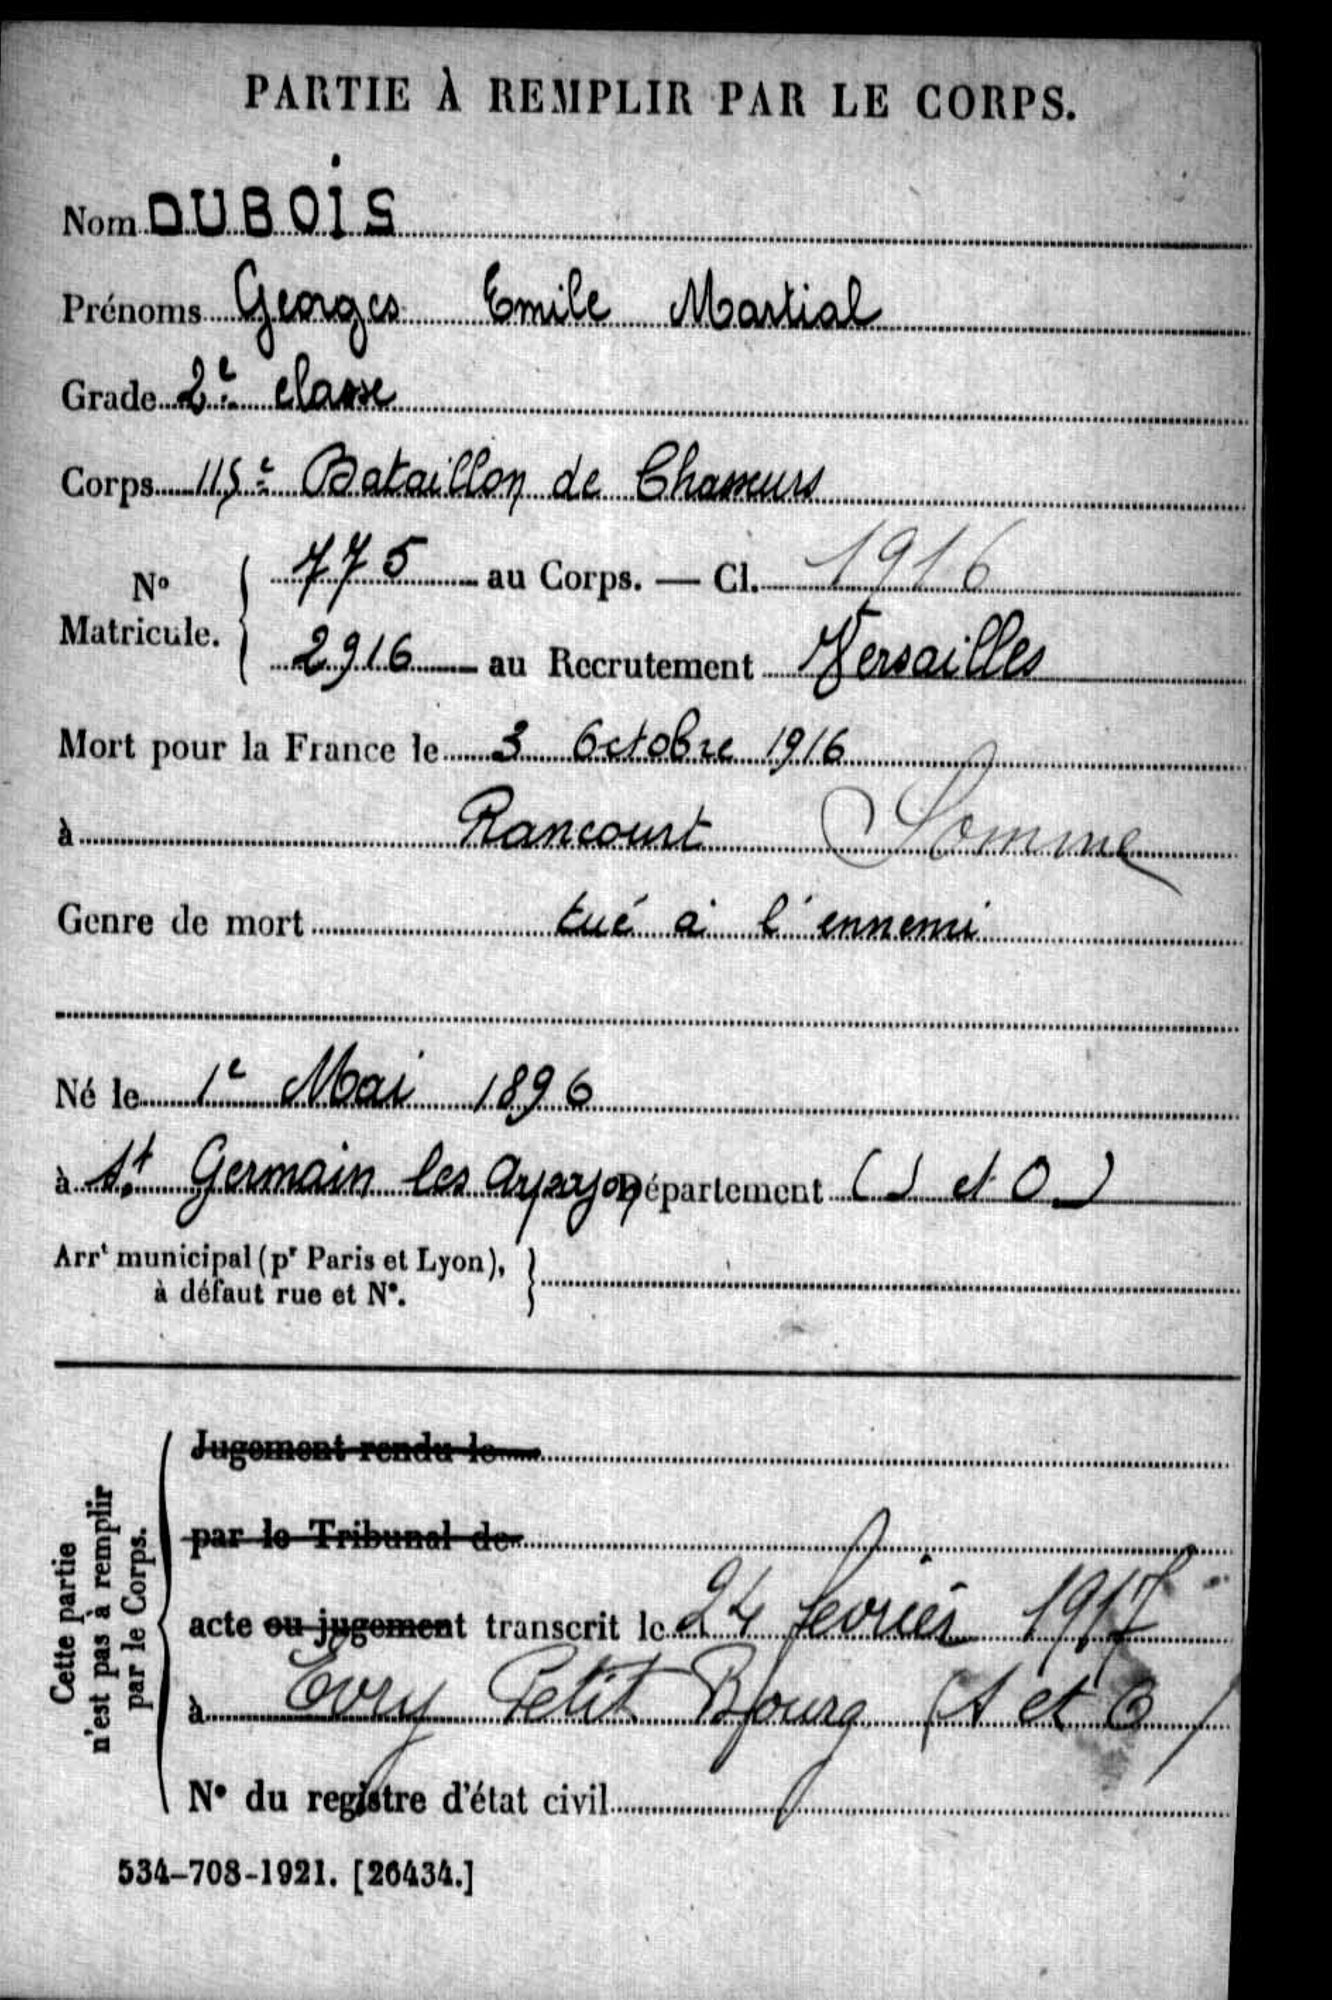 PARTIE À REMPLIR PAR LE CORPS.
Nom DUBOIS
Prénoms Georges Emile Martial
Grade 2e classe
Corps 115e Bataillon de Chasseurs
No Matricule. { 775 au Corps. — Cl. 1916
2916 au Recrutement Versailles
Mort pour la France le 3 Octobre 1916
à Rancourt Somme
Genre de mort tué à l'ennemi
Né le 1e Mai 1896
à St Germain les Arpajon Département (S et O)
Arrt municipal (pr Paris et Lyon), }
à défaut rue et No.
Cette partie
n'est pas à remplir
par le Corps.
Jugement rendu le
par le Tribunal de
acte ou jugement transcrit le 24 février 1917
à Evry Petit Bourg (S et O)
No du registre d'état civil
534-708-1921. [26434.]